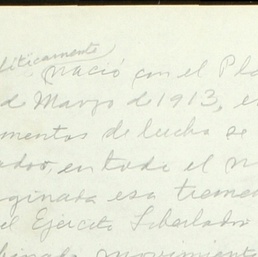 líticamente
nació con el Pla
de Marzo de 1913, e
mentos de lucha se
ados, en todo el m
ginada esa treme
el Ejército Libertador
movimiento